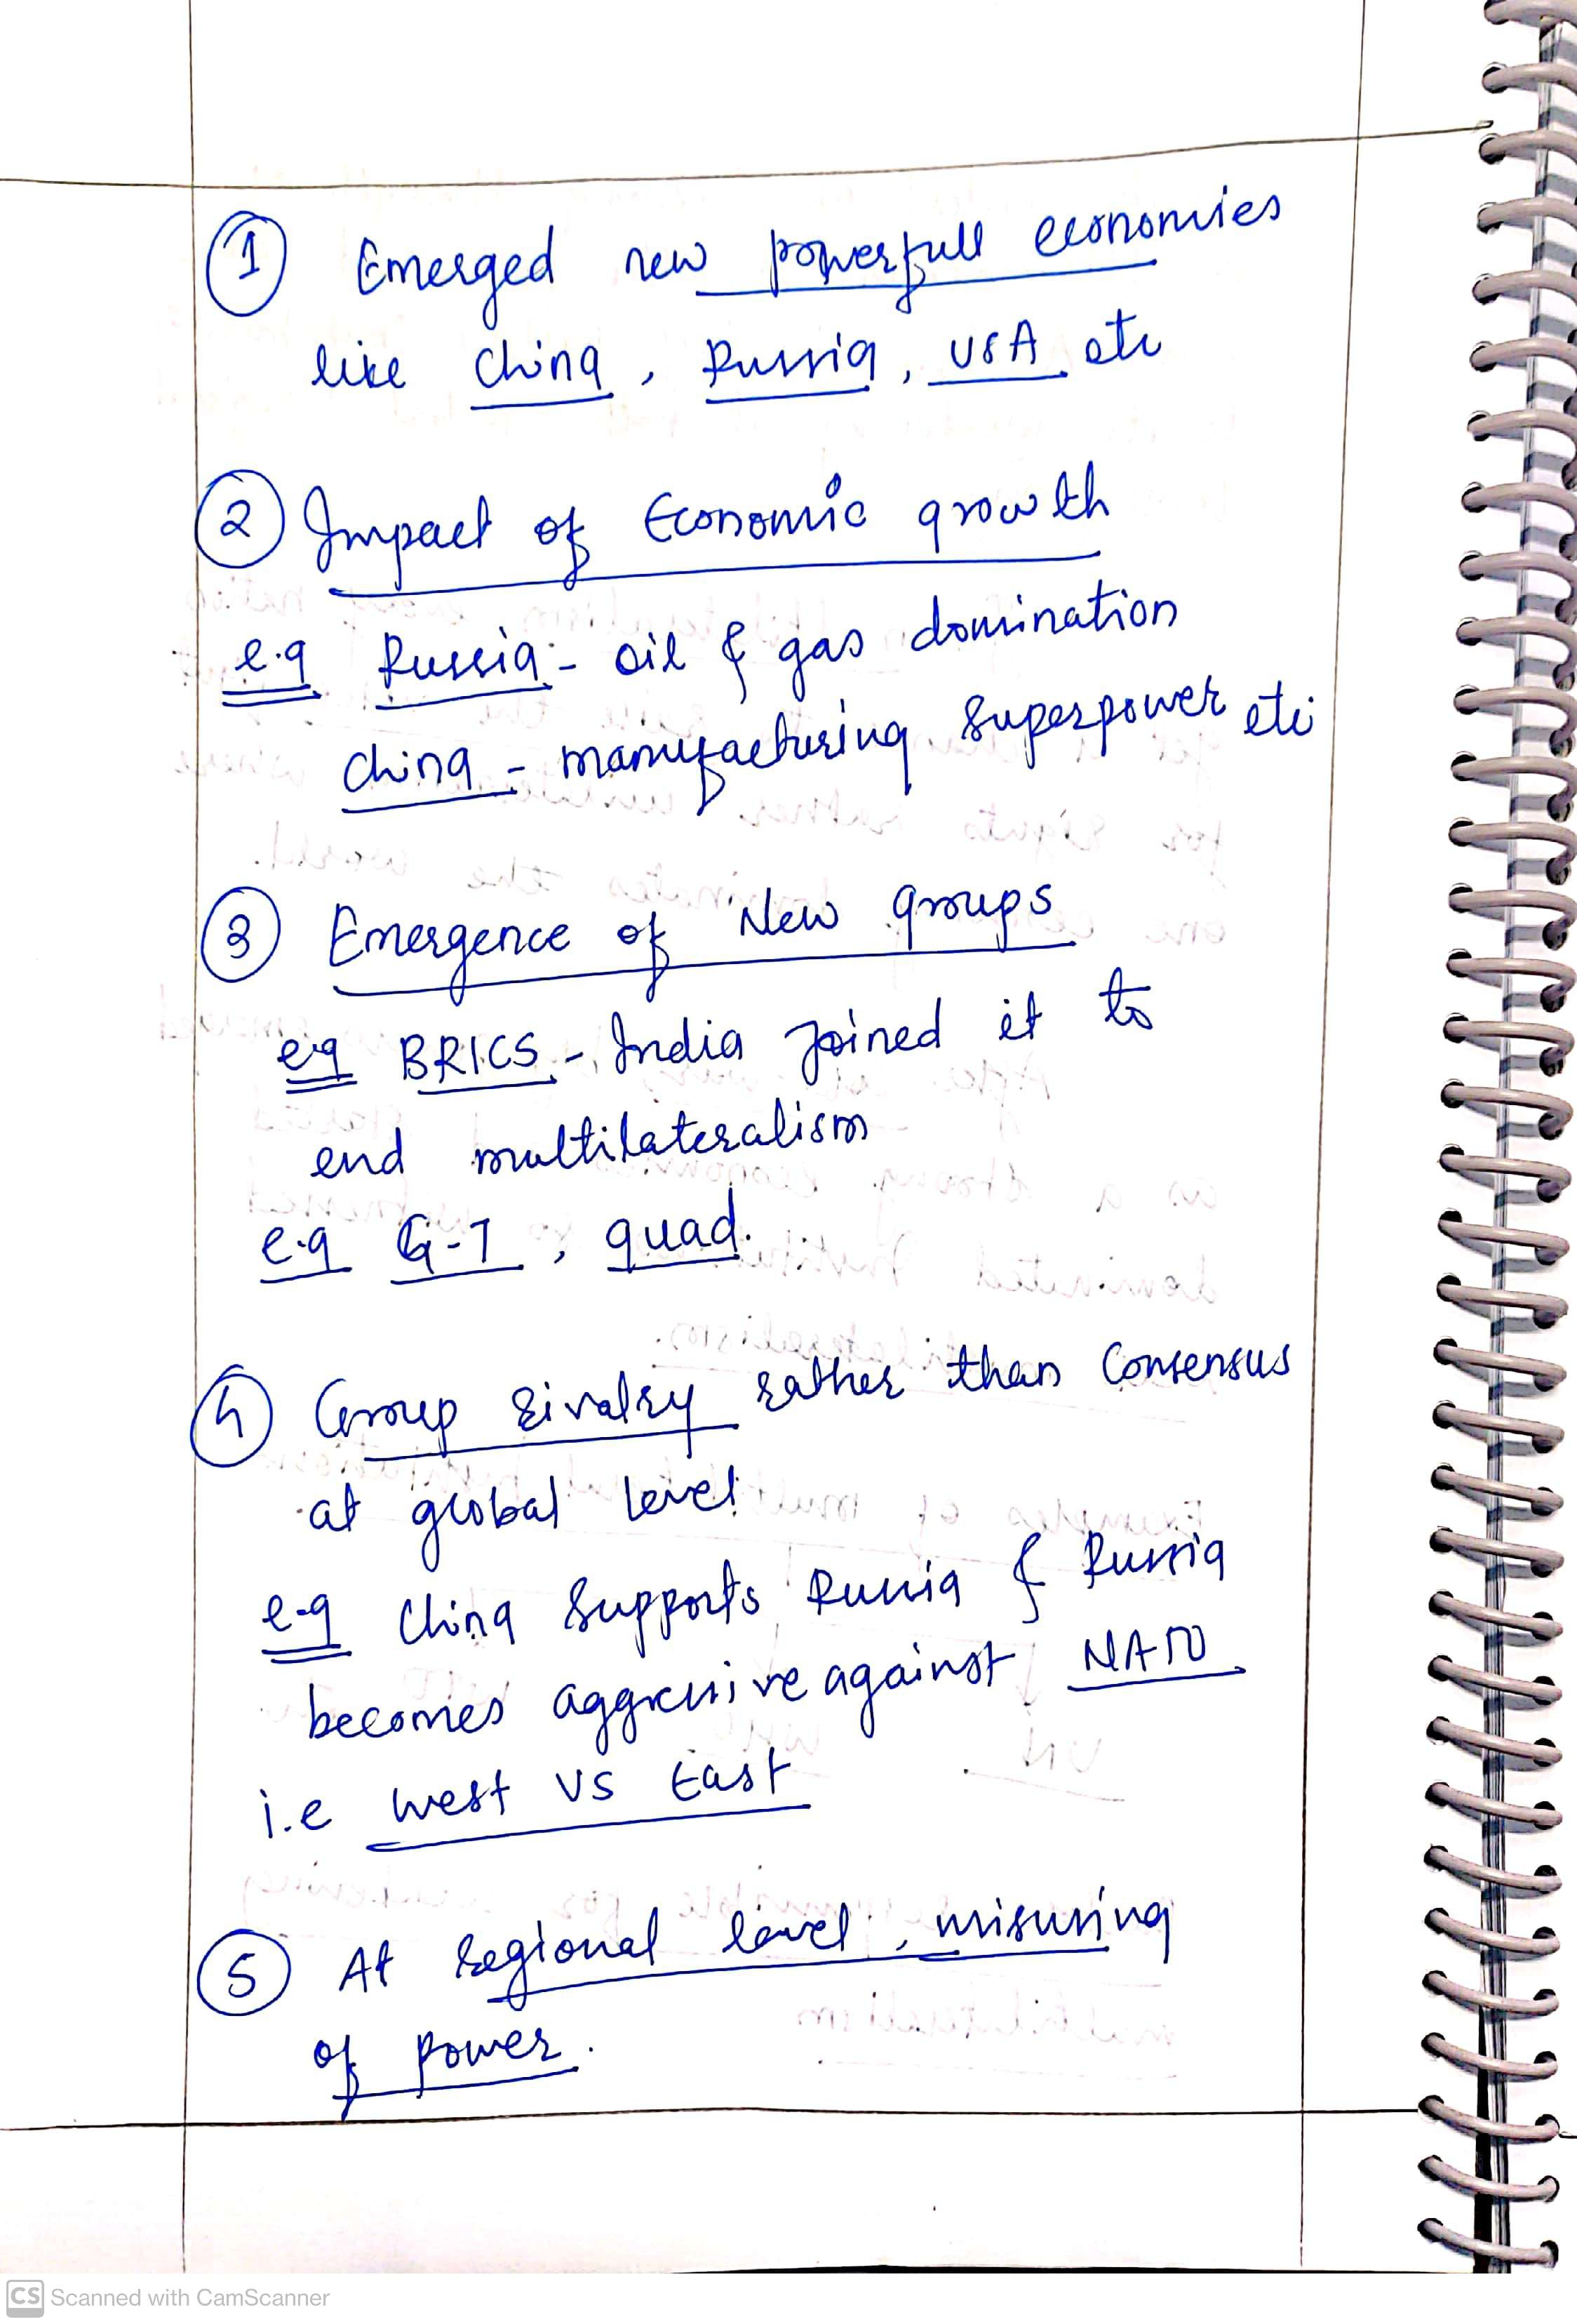 1 Emerged new powerfull economies
like China, Russia, USA etc
2 Impact of Economic growth
e.g Russia - oil & gas domination
China - manufacturing Superpower etc
3 Emergence of New groups
e.g BRICS - India Joined it to
end multilateralism
e.g G-7, quad.
4 Group rivalry rather than Consensus
at global level
e.g China Supports Russia & Russia
becomes aggressive against NATO
i.e West VS East
5 At regional level, misusing
of power.
CS Scanned with CamScanner